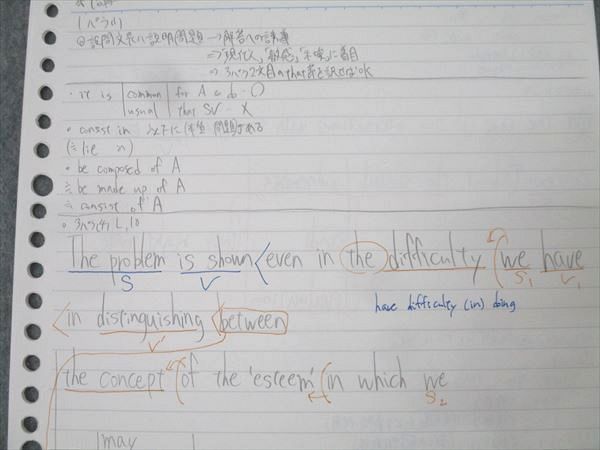 1パラ(1)
◎設問文 説明問題 → 解答への誘導
⇒「現代人」「敏感」に着目
⇒ 3パラ2文目のthat節を訳せばOK
・it is common for A to do ─ ○
usual that SV ─ ×
・consist in Aに(本質、問題)がある
(≒ lie in)
・be composed of A
≒ be made up of A
≒ consist of A
The problem is shown <even in the difficulty (we have
S V S₁ V₁
have difficulty (in) doing
<in distinguishing <between
V'
the concept (of the 'esteem' (in which we
S₂
may